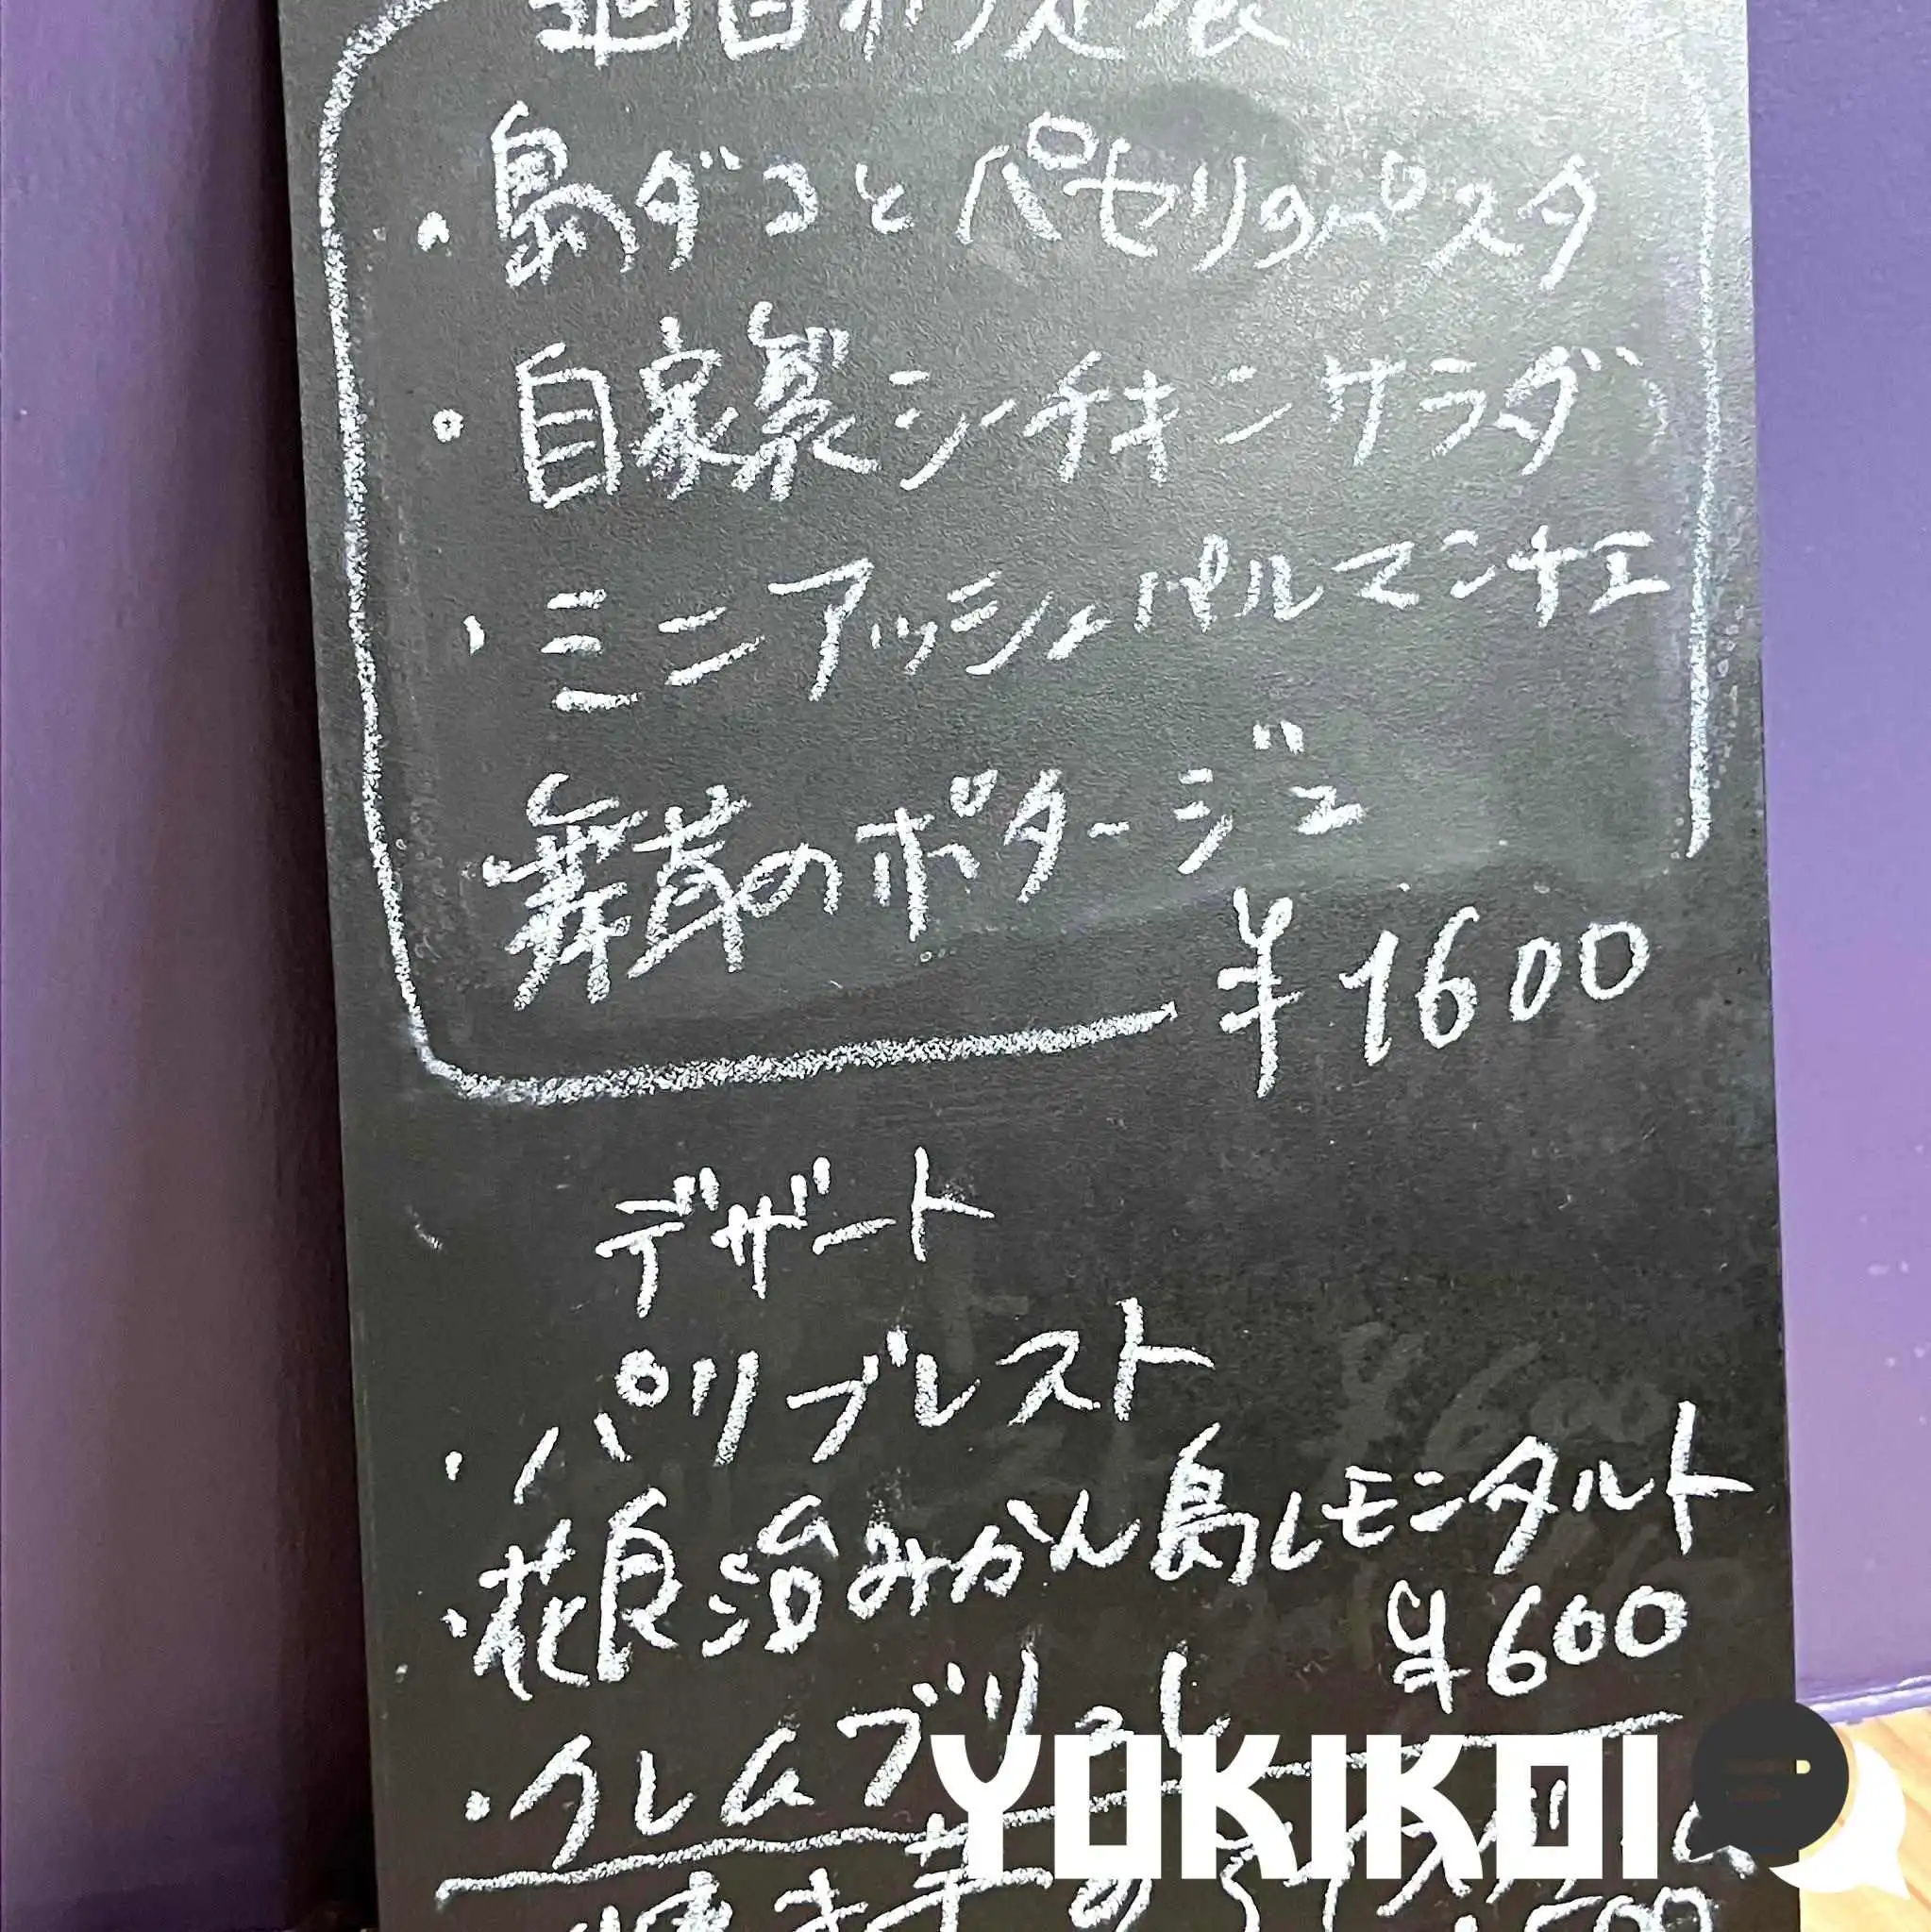 ・島ダコとパセリのペスタ
・自家製シーチキンサラダ
・ミニアッシェパルマンチエ
舞茸のポタージュ
¥1600
デザート
・パリブレスト
・花良治みかん島レモンタルト
¥600
・クレムブリュレ
YOKIKOI